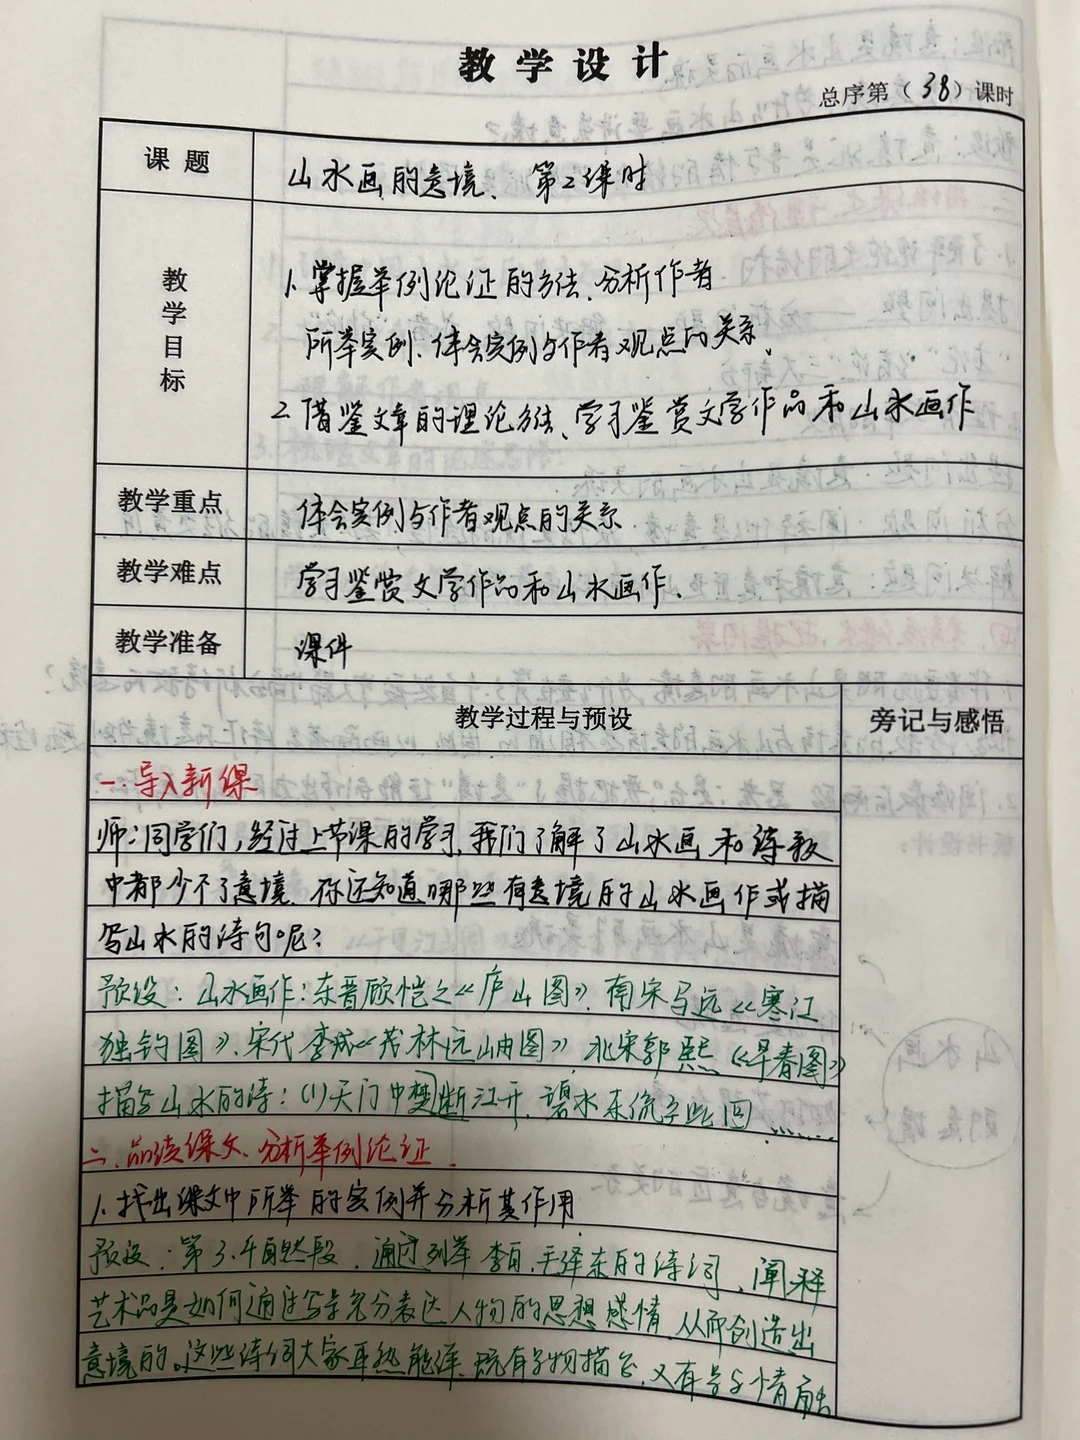 教学设计
总序第（38）课时
课题
山水画的意境、第2课时
教学目标
1、掌握举例论证的方法、分析作者
所举实例、体会实例与作者观点的关系、
2、借鉴文章的理论方法、学习鉴赏文学作品和山水画作
教学重点
体会实例与作者观点的关系
教学难点
学习鉴赏文学作品和山水画作、
教学准备
课件
教学过程与预设
旁记与感悟
一、导入新课
师：同学们，经过上节课的学习，我们了解了山水画和诗歌
中都少不了意境、你还知道哪些有意境的山水画作或描
写山水的诗句呢？
预设：山水画作：东晋顾恺之《庐山图》、南宋马远《寒江
独钓图》、宋代李成《茂林远岫图》北宋郭熙《早春图》
描写山水的诗：(1)天门中断楚江开、碧水东流至此回……
二、品读课文、分析举例论证
1、找出课文中所举的实例并分析其作用
预设：第3、4自然段、通过列举李白、毛泽东的诗词、阐释
艺术品是如何通过写景充分表达人物的思想感情、从而创造出
意境的。这些诗词大家耳熟能详、既有景物描写、又有景与情